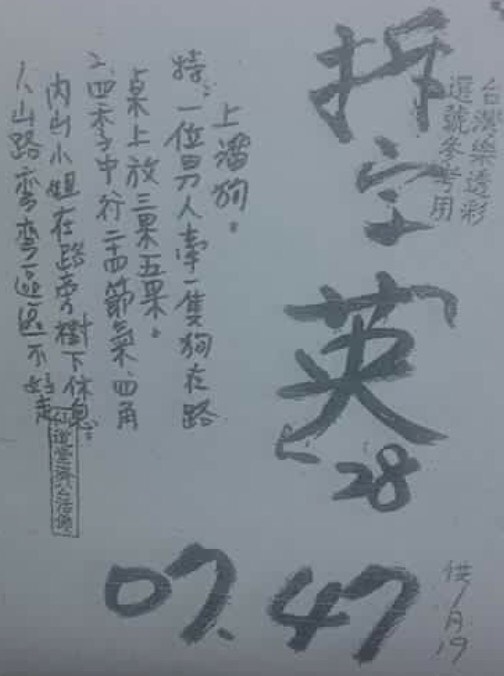 台灣樂透彩
選號參考用
拆字英
28
47
07.
供1月19
1.山路彎彎區區不好走
內山小姐在路旁樹下休息。
2.四季中行二十四節氣.四角
桌上放三果五果。
特:一位男人牽一隻狗在路
上溜狗。